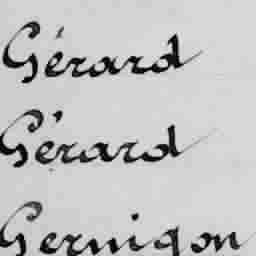 Gérard
Gérard
Gernigon